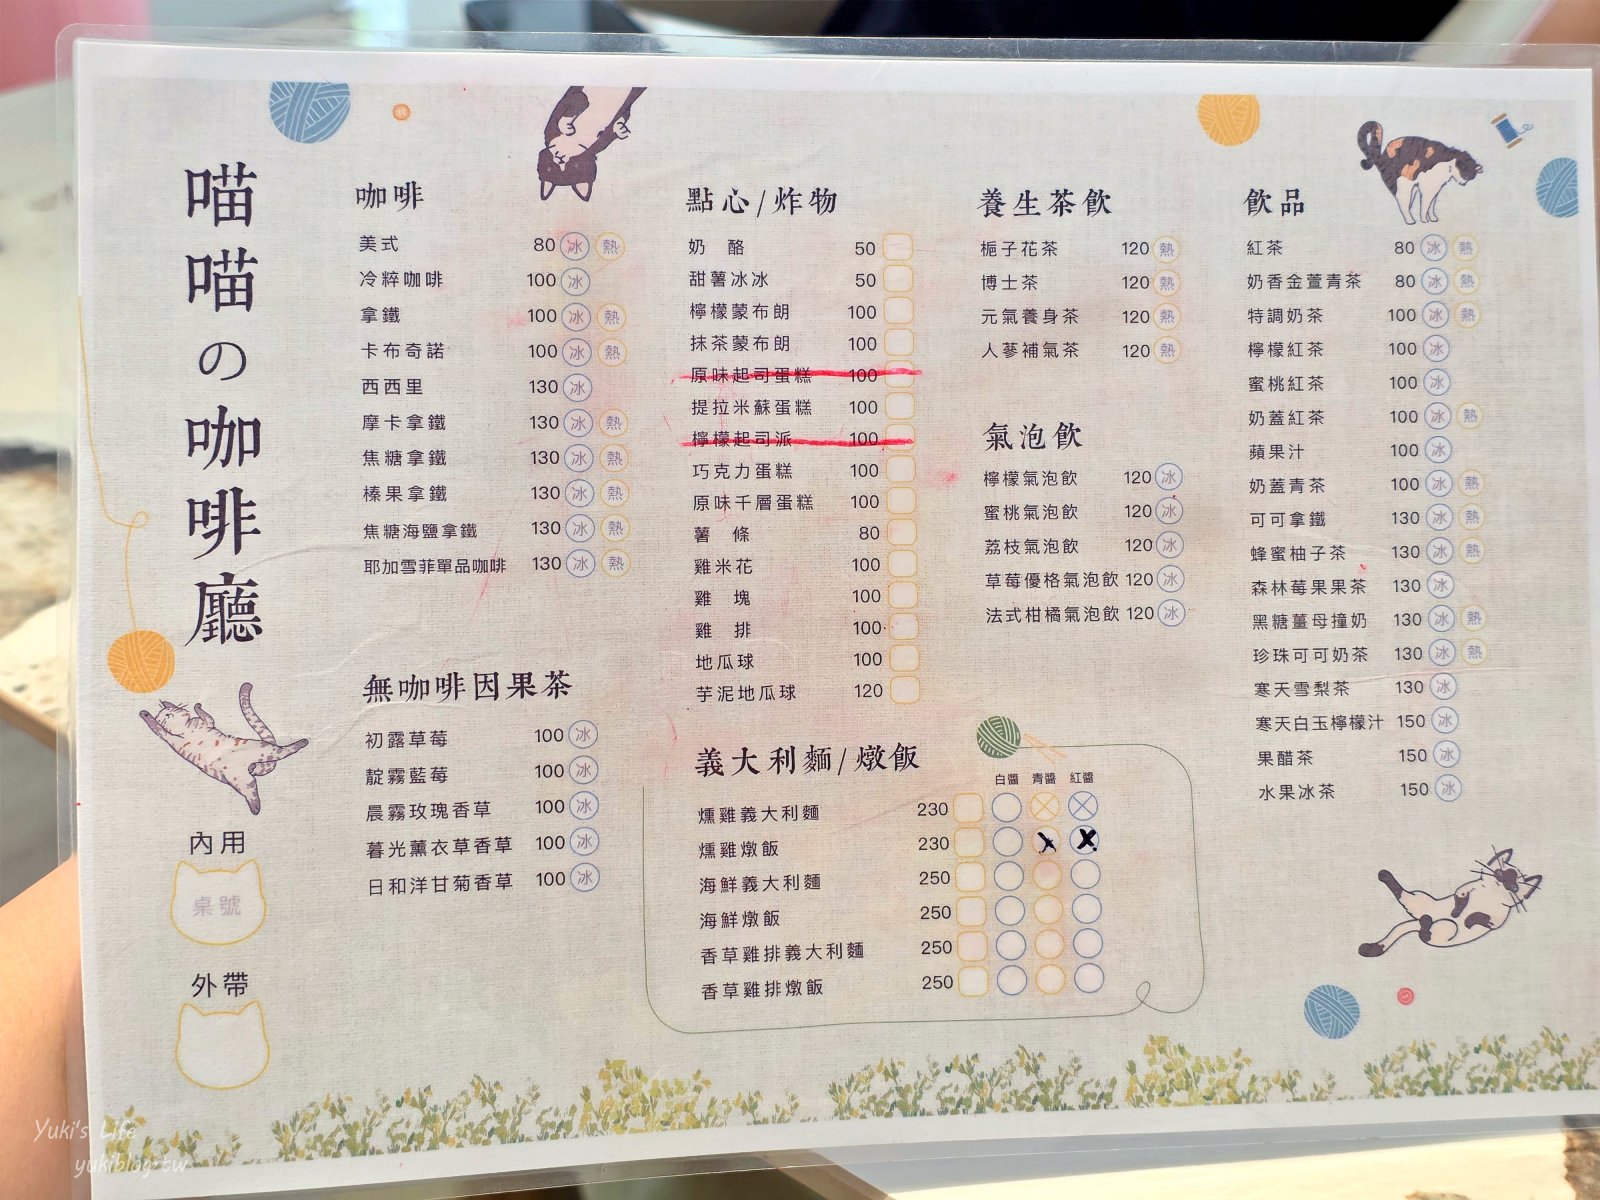 喵喵の咖啡廳
內用
桌號
外帶
咖啡
美式 80 冰 熱
冷粹咖啡 100 冰
拿鐵 100 冰 熱
卡布奇諾 100 冰 熱
西西里 130 冰
摩卡拿鐵 130 冰 熱
焦糖拿鐵 130 冰 熱
榛果拿鐵 130 冰 熱
焦糖海鹽拿鐵 130 冰 熱
耶加雪菲單品咖啡 130 冰 熱
無咖啡因果茶
初露草莓 100 冰
靛霧藍莓 100 冰
晨霧玫瑰香草 100 冰
暮光薰衣草香草 100 冰
日和洋甘菊香草 100 冰
點心/炸物
奶 酪 50
甜薯冰冰 50
檸檬蒙布朗 100
抹茶蒙布朗 100
原味起司蛋糕 100
提拉米蘇蛋糕 100
檸檬起司派 100
巧克力蛋糕 100
原味千層蛋糕 100
薯 條 80
雞米花 100
雞 塊 100
雞 排 100
地瓜球 100
芋泥地瓜球 120
義大利麵/燉飯
白醬 青醬 紅醬
燻雞義大利麵 230
燻雞燉飯 230
海鮮義大利麵 250
海鮮燉飯 250
香草雞排義大利麵 250
香草雞排燉飯 250
養生茶飲
梔子花茶 120 熱
博士茶 120 熱
元氣養身茶 120 熱
人蔘補氣茶 120 熱
氣泡飲
檸檬氣泡飲 120 冰
蜜桃氣泡飲 120 冰
荔枝氣泡飲 120 冰
草莓優格氣泡飲 120 冰
法式柑橘氣泡飲 120 冰
飲品
紅茶 80 冰 熱
奶香金萱青茶 80 冰 熱
特調奶茶 100 冰 熱
檸檬紅茶 100 冰
蜜桃紅茶 100 冰
奶蓋紅茶 100 冰 熱
蘋果汁 100 冰
奶蓋青茶 100 冰 熱
可可拿鐵 130 冰 熱
蜂蜜柚子茶 130 冰 熱
森林莓果果茶 130 冰
黑糖薑母撞奶 130 冰 熱
珍珠可可奶茶 130 冰 熱
寒天雪梨茶 130 冰
寒天白玉檸檬汁 150 冰
果醋茶 150 冰
水果冰茶 150 冰
Yuki's Life
yukiblog.tw